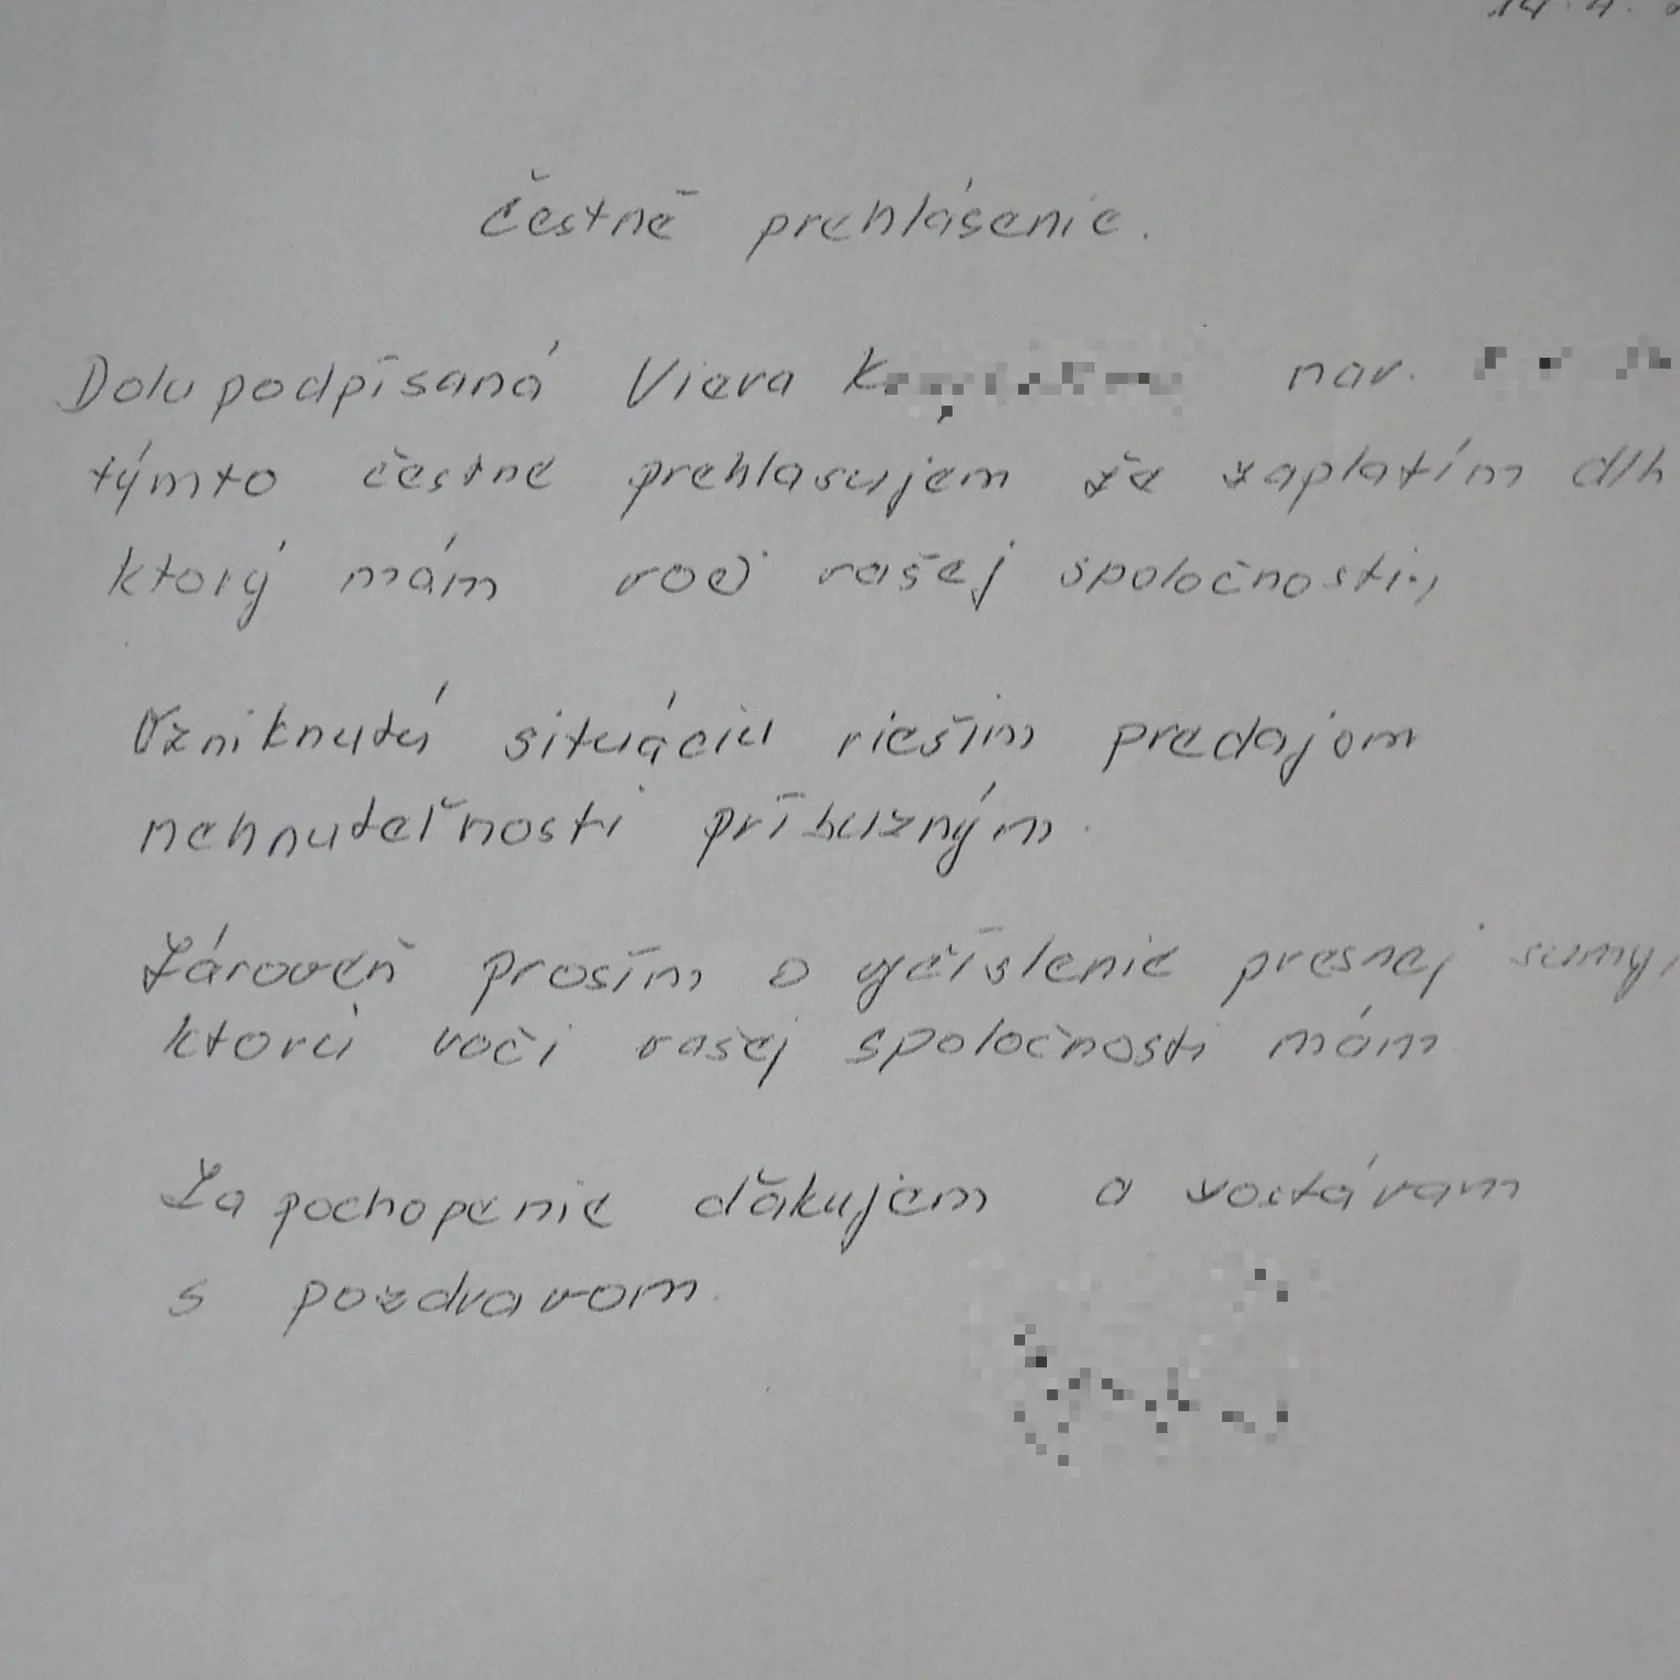 14.4.
Čestné prehlásenie.
Dolu podpísaná Viera K nar.
týmto čestne prehlasujem že zaplatím dlh
ktorý mám voči vašej spoločnosti,
Vzniknutú situáciu riešim predajom
nehnuteľnosti príbuzným.
Zároveň prosím o vyčíslenie presnej sumy,
ktorú voči vašej spoločnosti mám
Za pochopenie ďakujem a zostávam
s pozdravom.